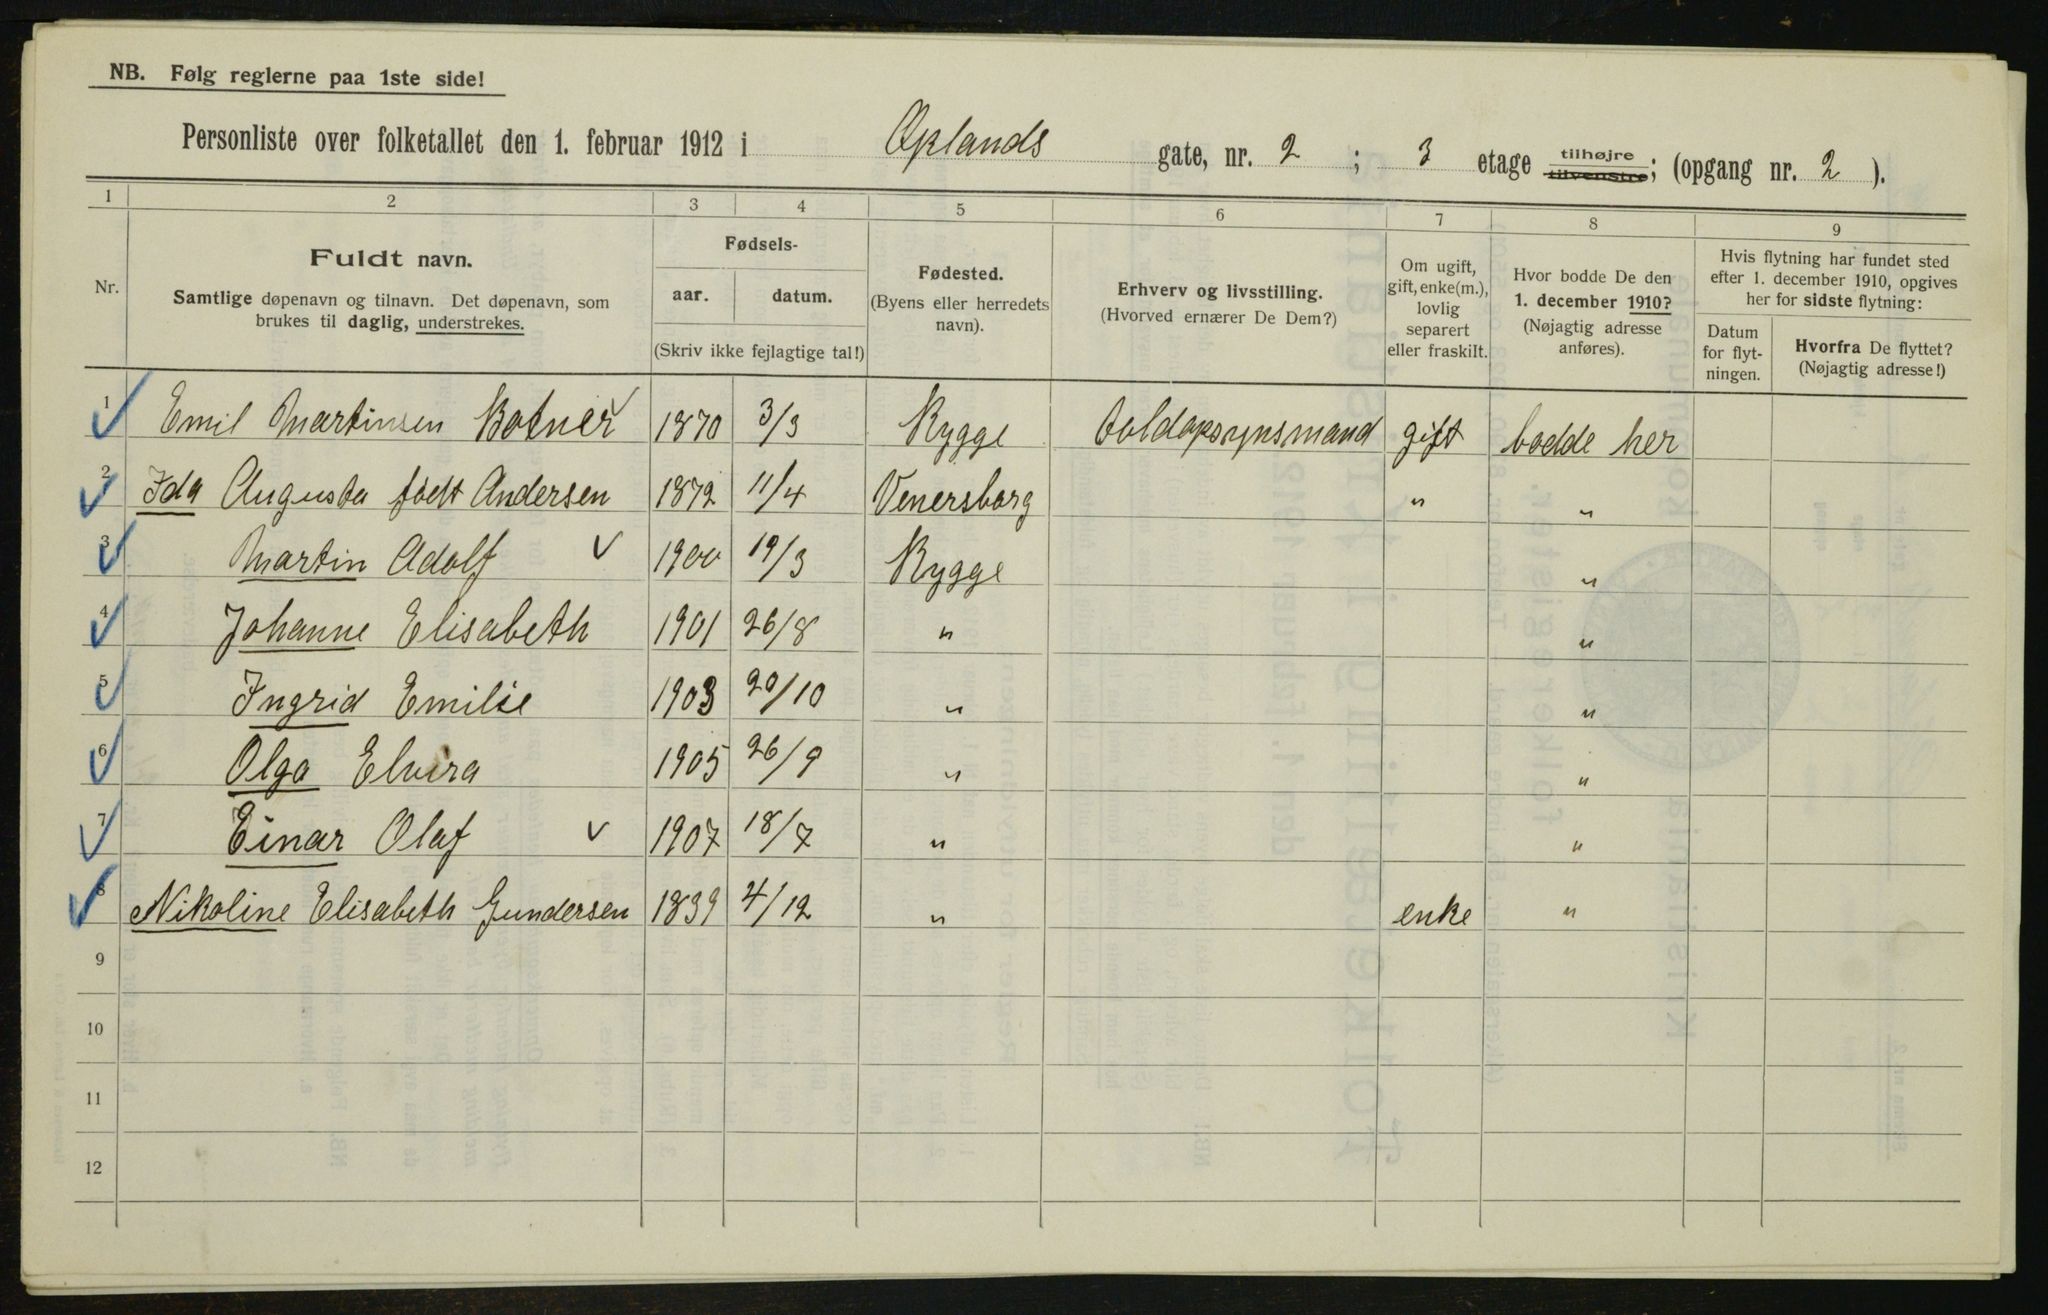 NB. Følg reglerne paa 1ste side!
Personliste over folketallet den 1. februar 1912 i Oplands gate, nr. 2 ; 3 etage tilhøjre tilvenstre; (opgang nr. 2 ).
1 2 3 4 5 6 7 8 9
Nr.
Fuldt navn.
Samtlige døpenavn og tilnavn. Det døpenavn, som
brukes til daglig, understrekes.
Fødsels-
aar. datum.
(Skriv ikke fejlagtige tal!)
Fødested.
(Byens eller herredets
navn).
Erhverv og livsstilling.
(Hvorved ernærer De Dem?)
Om ugift,
gift, enke(m.),
lovlig
separert
eller fraskilt.
Hvor bodde De den
1. december 1910?
(Nøjagtig adresse
anføres).
Hvis flytning har fundet sted
efter 1. december 1910, opgives
her for sidste flytning:
Datum
for flyt-
ningen.
Hvorfra De flyttet?
(Nøjagtig adresse!)
1 Emil Martinsen Botner 1870 3/3 Rygge toldopsynsmand gift bodde her
2 Ida Augusta født Andersen 1872 11/4 Venersborg " "
3 Martin Adolf 1900 19/3 Rygge "
4 Johanne Elisabeth 1901 26/8 " "
5 Ingrid Emilie 1903 20/10 " "
6 Olga Elvira 1905 26/9 " "
7 Einar Olaf 1907 18/7 " "
8 Nikoline Elisabeth Gundersen 1839 4/12 " enke "
9
10
11
12